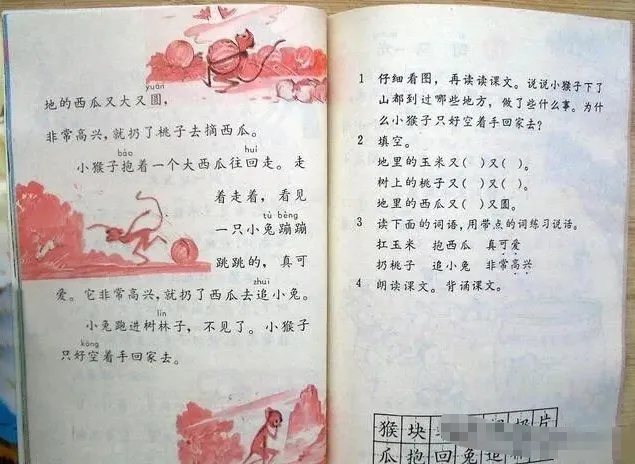 yuán
地的西瓜又大又圆，
非常高兴，就扔了桃子去摘西瓜。
bào huí
小猴子抱着一个大西瓜往回走。走
着走着，看见
tù bèng
一只小兔蹦蹦
跳跳的，真可
zhuī
爱。它非常高兴，就扔了西瓜去追小兔。
lín
小兔跑进树林子，不见了。小猴子
kōng
只好空着手回家去。
1 仔细看图，再读读课文。说说小猴子下了
山都到过哪些地方，做了些什么事。为什
么小猴子只好空着手回家去？
2 填空。
地里的玉米又（ ）又（ ）。
树上的桃子又（ ）又（ ）。
地里的西瓜又（ ）又圆。
3 读下面的词语，用带点的词练习说话。
扛玉米 抱西瓜 真可爱
扔桃子 追小兔 非常高兴
4 朗读课文。背诵课文。
猴 块 扔 片
瓜 抱 回 兔 追